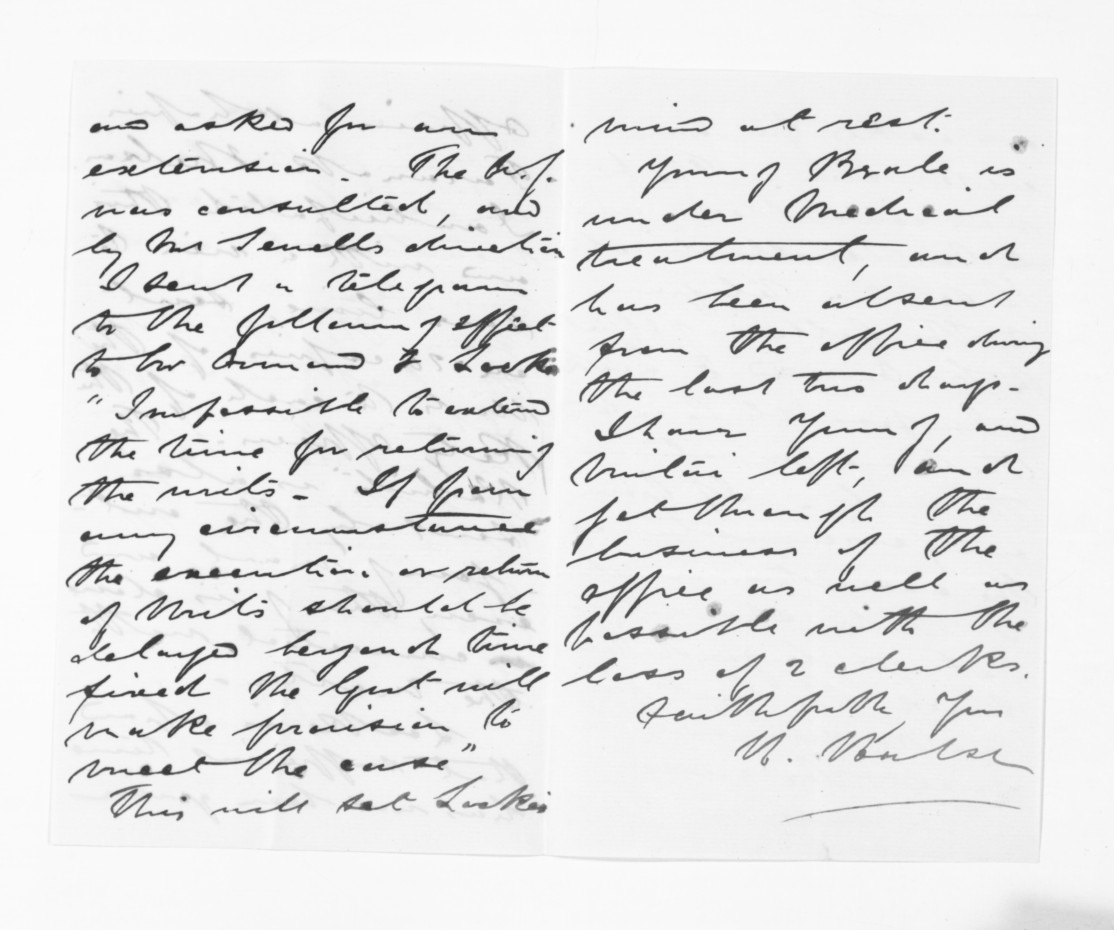 and asked for an
extension. The A.G.
was consulted, and
by Mr Sewells direction
I sent a telegram
to the following effect
to Ormond & Locke
"Impossible to extend
the time for returning
the writs. If from
any circumstance
the execution or return
of Writs should be
delayed beyond time
fixed the Govt will
make provision to
meet the case"
This will set Lockes
mind at rest.
Young is
under Medical
treatment, and
has been absent
from the office during
the last two days.
I have Young, and
left, and
get through the
business of the
office as well as
possible with the
loss of 2 clerks.
Faithfully Yrs